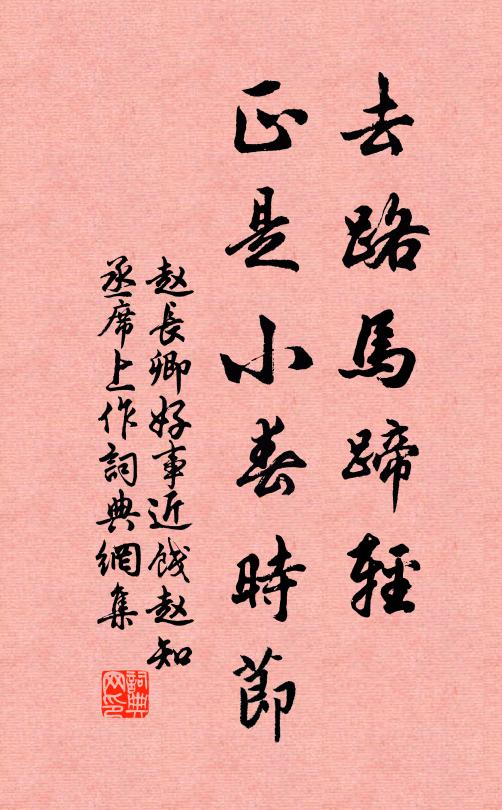 去路馬蹄輕
正是小春時節
赵長卿好事近餞赵知
丞席上作詞典網集
詞典网印